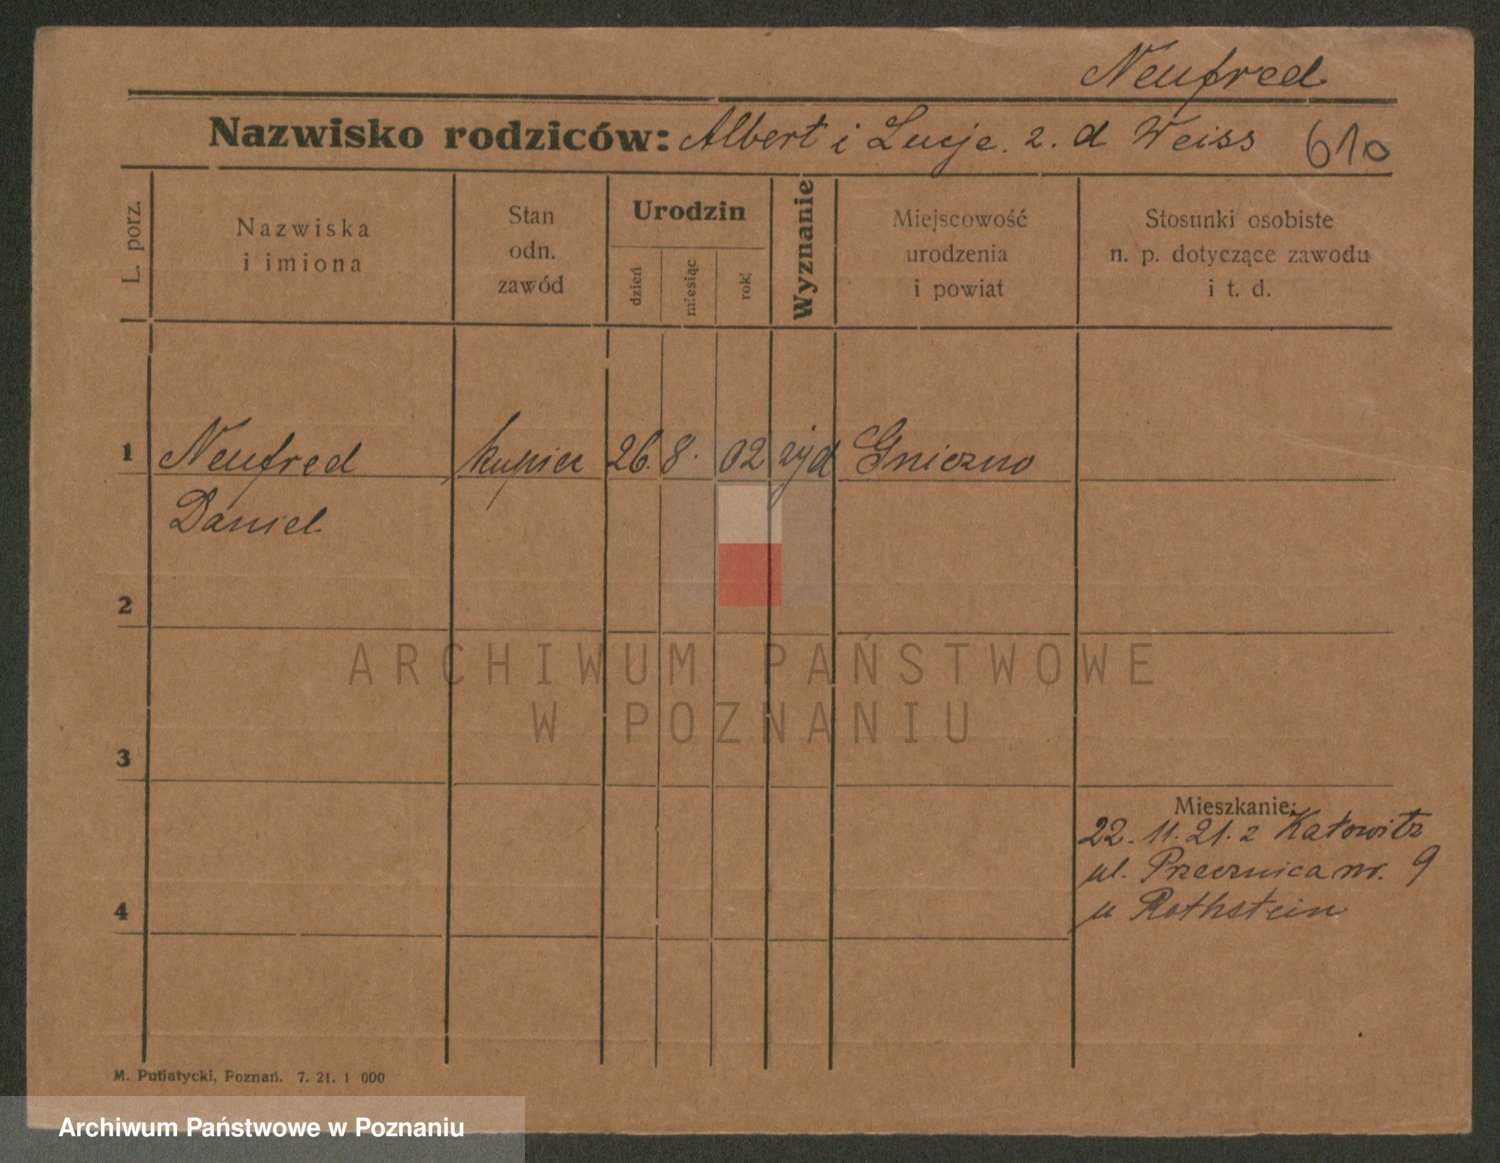 Neufred
Nazwisko rodziców: Albert i Lucje. z. d Weiss 610
L. porz.
Nazwiska
i imiona
Stan
odn.
zawód
Urodzin
dzień
miesiąc
rok
Wyznanie
Miejscowość
urodzenia
i powiat
Stosunki osobiste
n. p. dotyczące zawodu
i t. d.
1 Neufred kupiec 26. 8. 02 żyd Gniezno
Daniel
2
ARCHIWUM PAŃSTWOWE
W POZNANIU
3
Mieszkanie:
22. 11. 21. z Katowitz
ul. Przecznica nr. 9
4 u Rothstein
M. Putiatycki, Poznań. 7. 21. 1 000
Archiwum Państwowe w Poznaniu